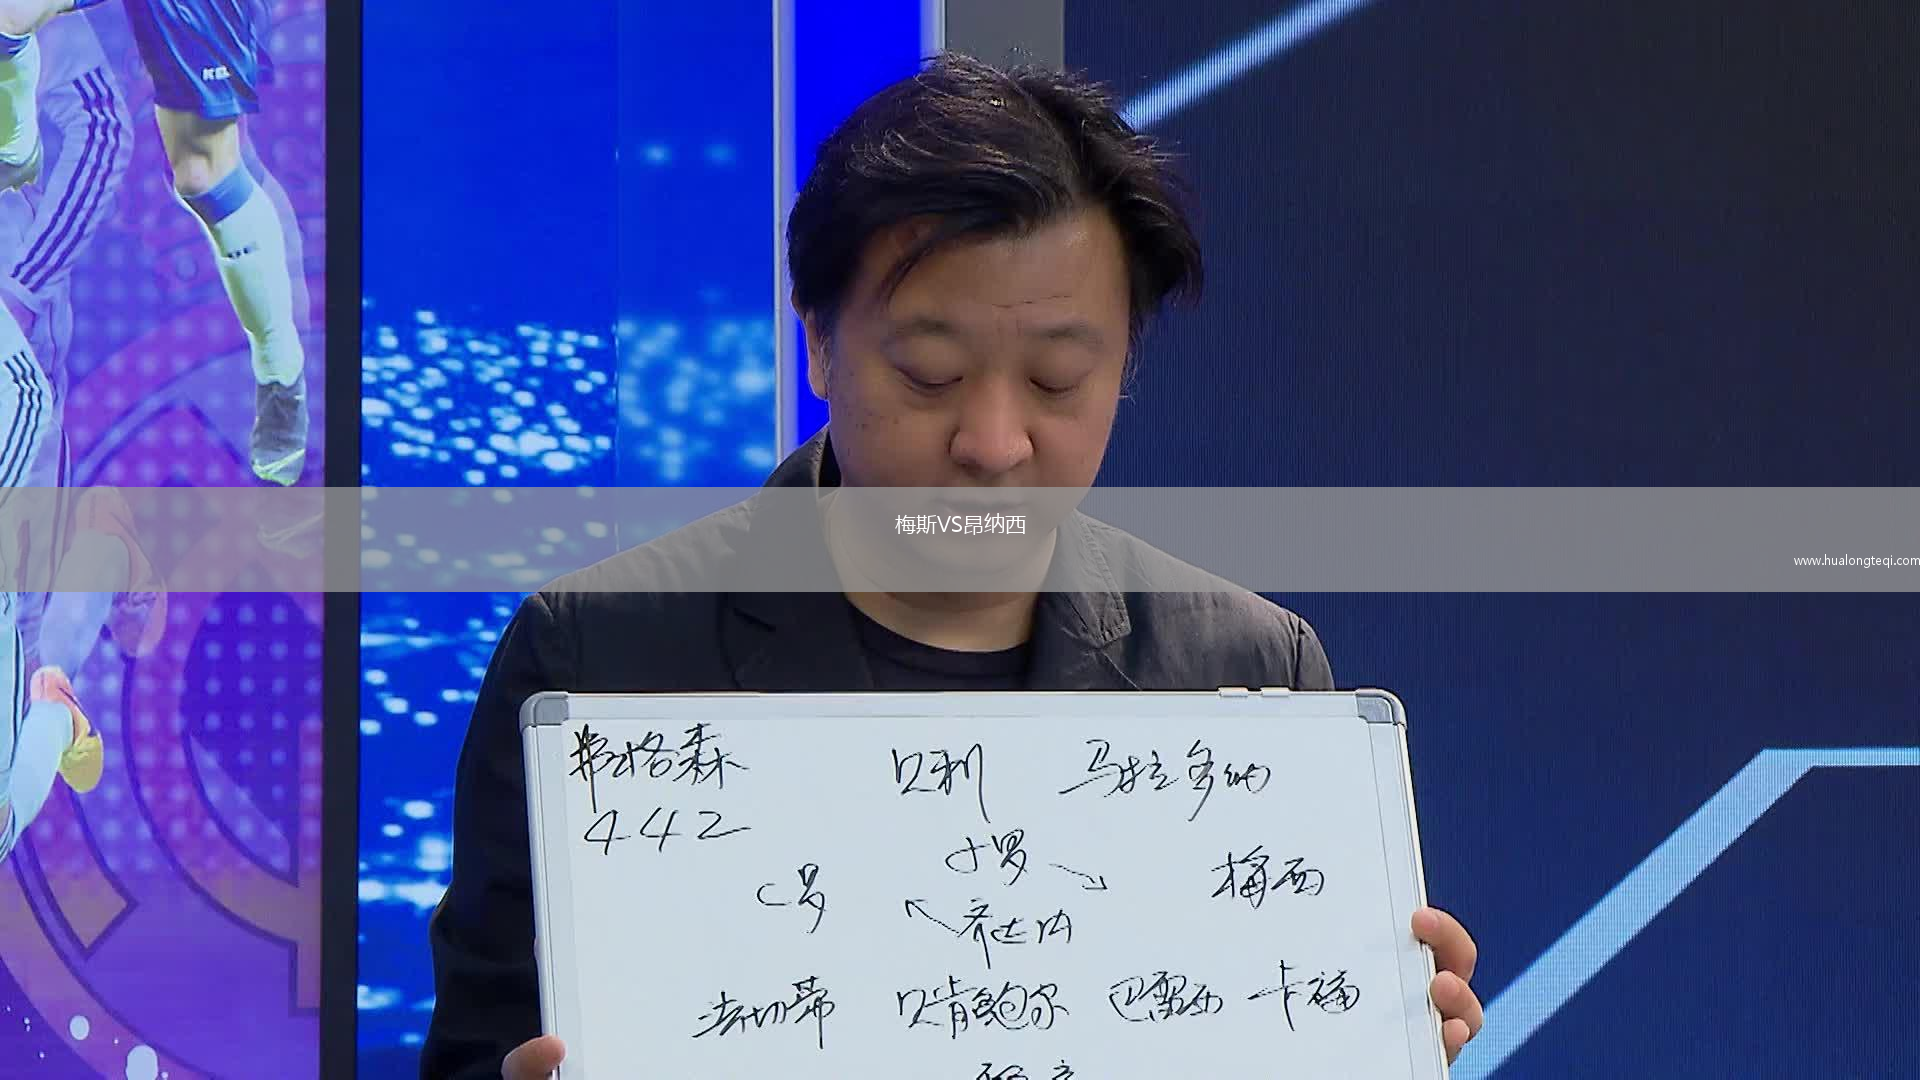 KEL
梅斯VS昂纳西
www.hualongteqi.com
弗格森
442
贝利 马拉多纳
小罗
C罗 梅西
齐达内
法切蒂 贝肯鲍尔 巴雷西 卡福